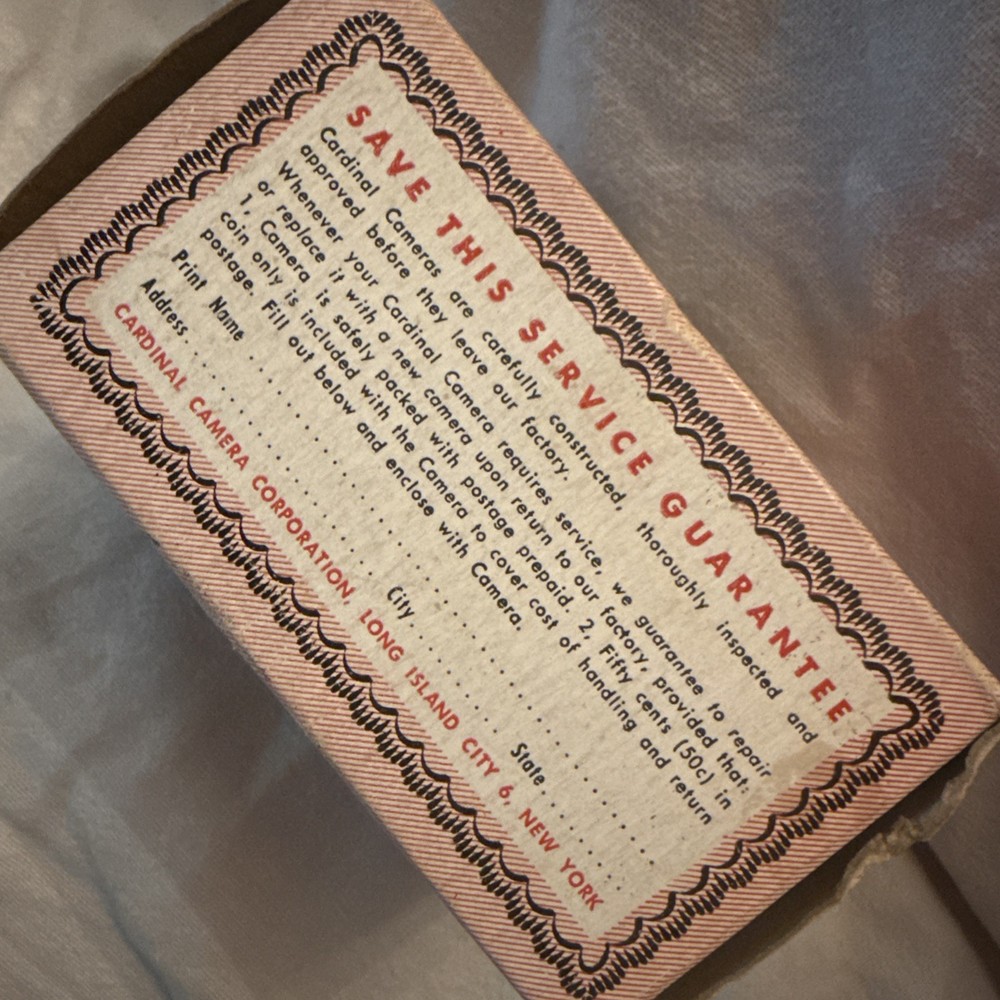 SAVE THIS SERVICE GUARANTEE
Cardinal Cameras are carefully constructed, thoroughly inspected and
approved before they leave our factory.
Whenever your Cardinal Camera requires service, we guarantee to repair
or replace it with a new camera upon return to our factory, provided that:
1, Camera is safely packed with postage prepaid. 2, Fifty cents (50c) in
coin only is included with the Camera to cover cost of handling and return
postage. Fill out below and enclose with Camera.
Print Name . . . . . . . . . . . . . . . . . . . . . . . . . . . . . .
Address . . . . . . . . . . . . . . . City . . . . . . . . State . . . . . . .
CARDINAL CAMERA CORPORATION, LONG ISLAND CITY 6, NEW YORK